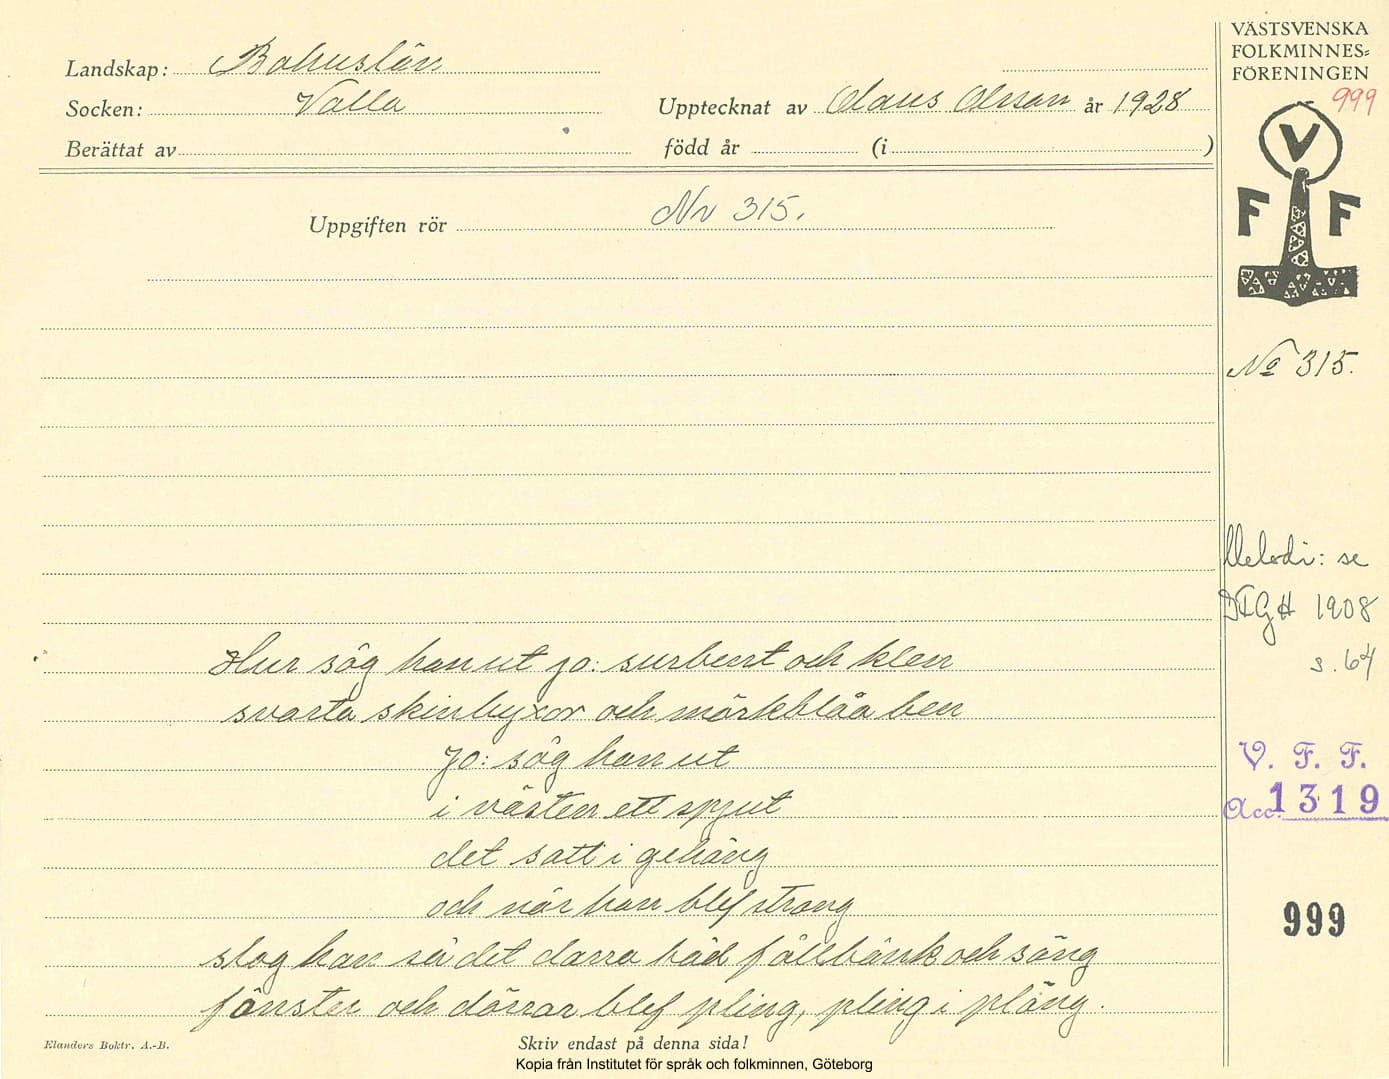 Landskap: Bohuslän
Socken: Valla
Upptecknat av Olaus Olsson år 1928
Berättat av
född år (i )
Uppgiften rör Nr 315.
Hur såg han ut jo: surbent och klen
svarta skinbyxor och mörkblåa ben
jo: såg han ut
i västen ett spjut
det satt i gehäng
och när han blef strang
slog han så det darra båd fållbänk och säng
fönster och dörrar blef pling, pling i pläng.
Elanders Boktr. A.-B.
Skriv endast på denna sida!
Kopia från Institutet för språk och folkminnen, Göteborg
VÄSTSVENSKA
FOLKMINNES-
FÖRENINGEN
999
V
F F
No 315.
Melodi: se
DFGH 1908
s. 64
V. F. F.
Acc. 1319
999